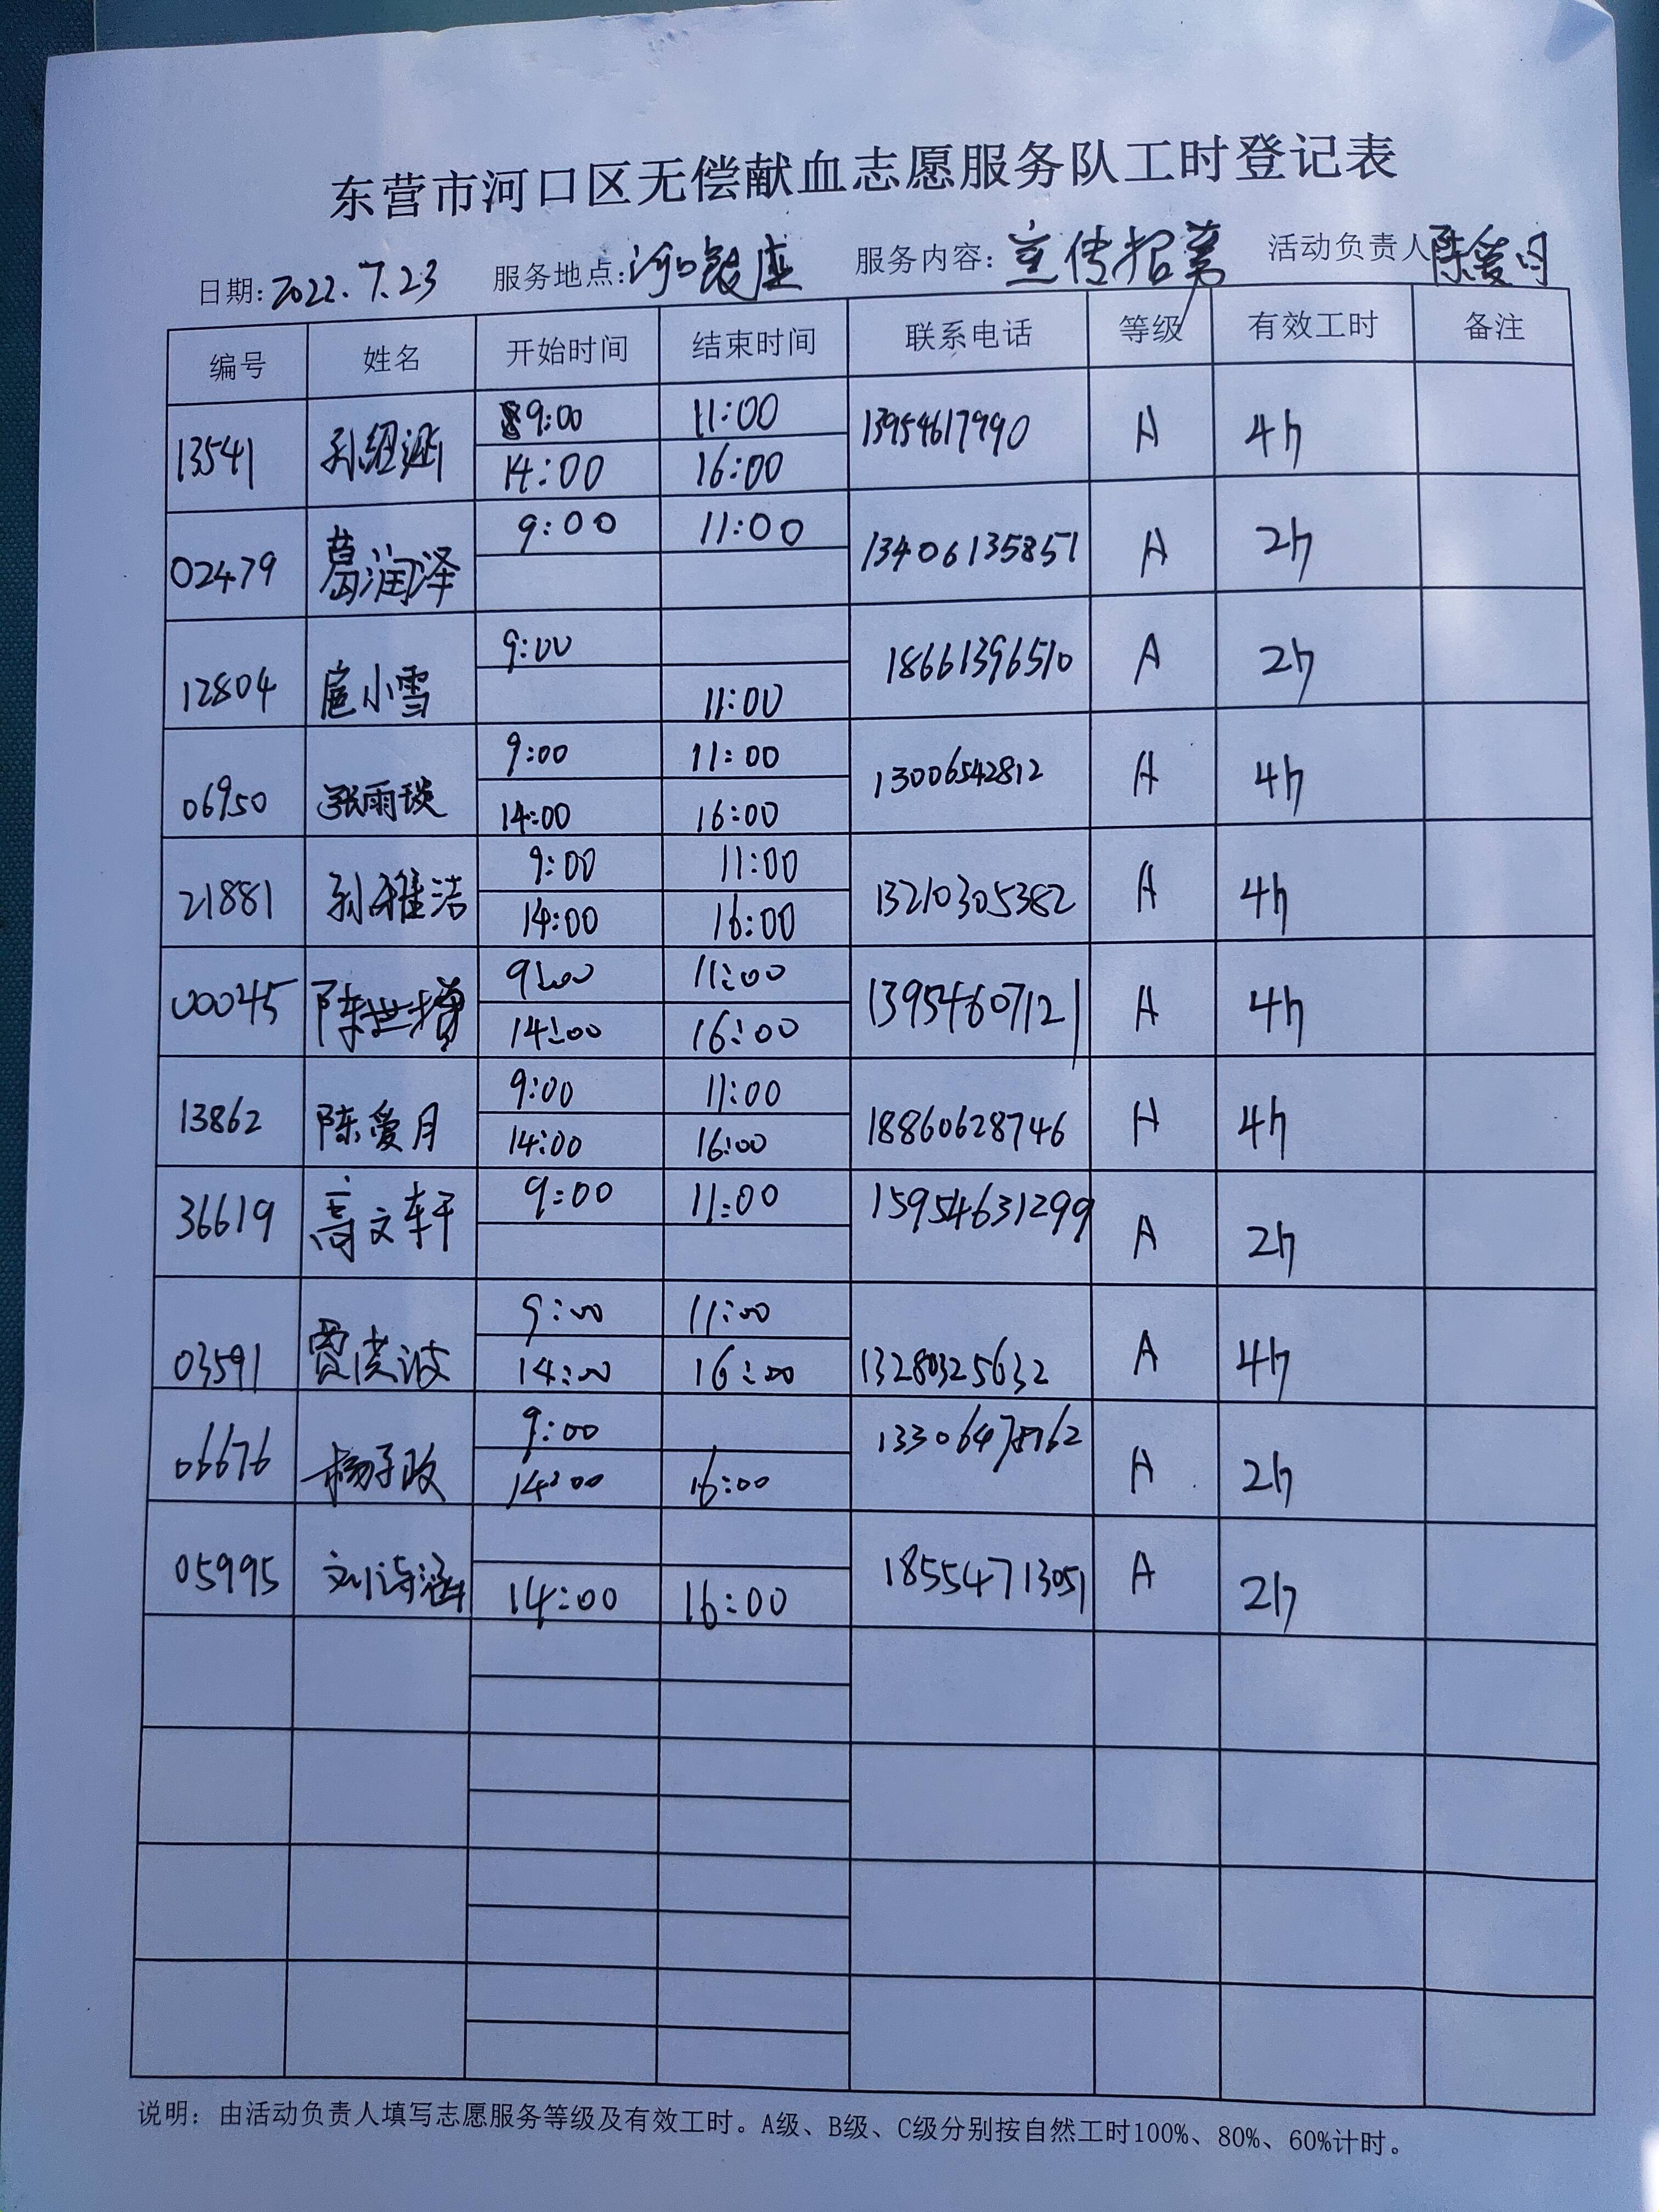 东营市河口区无偿献血志愿服务队工时登记表
日期:2022.7.23 服务地点:河口银座 服务内容:宣传招募 活动负责人陈爱月
编号 姓名 开始时间 结束时间 联系电话 等级 有效工时 备注
9:00 11:00
13541 孙 13954617990 A 4h
14:00 16:00
9:00 11:00
02479 葛润泽 13406135857 A 2h
9:00
12804 扈小雪 18661396510 A 2h
11:00
9:00 11:00
06950 张雨琰 13006542812 A 4h
14:00 16:00
9:00 11:00
21881 孙雅洁 13210305382 A 4h
14:00 16:00
9:00 11:00
00045 陈世增 13954607121 A 4h
14:00 16:00
9:00 11:00
13862 陈爱月 18860628746 A 4h
14:00 16:00
9:00 11:00
36619 高文轩 15954631299 A 2h
9:00 11:00
03591 贾洪波 13280325632 A 4h
14:00 16:00
9:00
06676 杨子政 A 2h
14:00 16:00
05995 刘诗涵 18554713051 A 2h
14:00 16:00
说明：由活动负责人填写志愿服务等级及有效工时。A级、B级、C级分别按自然工时100%、80%、60%计时。